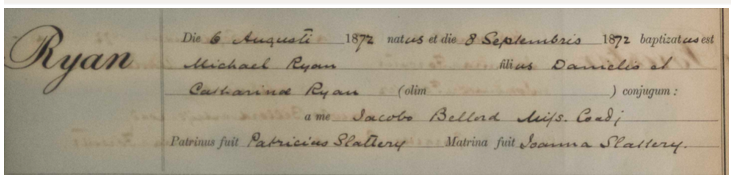 Ryan
Die 6 Augusti 1872 natus et die 8 Septembris 1872 baptizatus est
Michael Ryan filius Danielis et
Catharinæ Ryan (olim ) conjugum :
a me Jacobo Bellord Miss. Coadj
Patrinus fuit Patricius Slattery Matrina fuit Joanna Slattery.